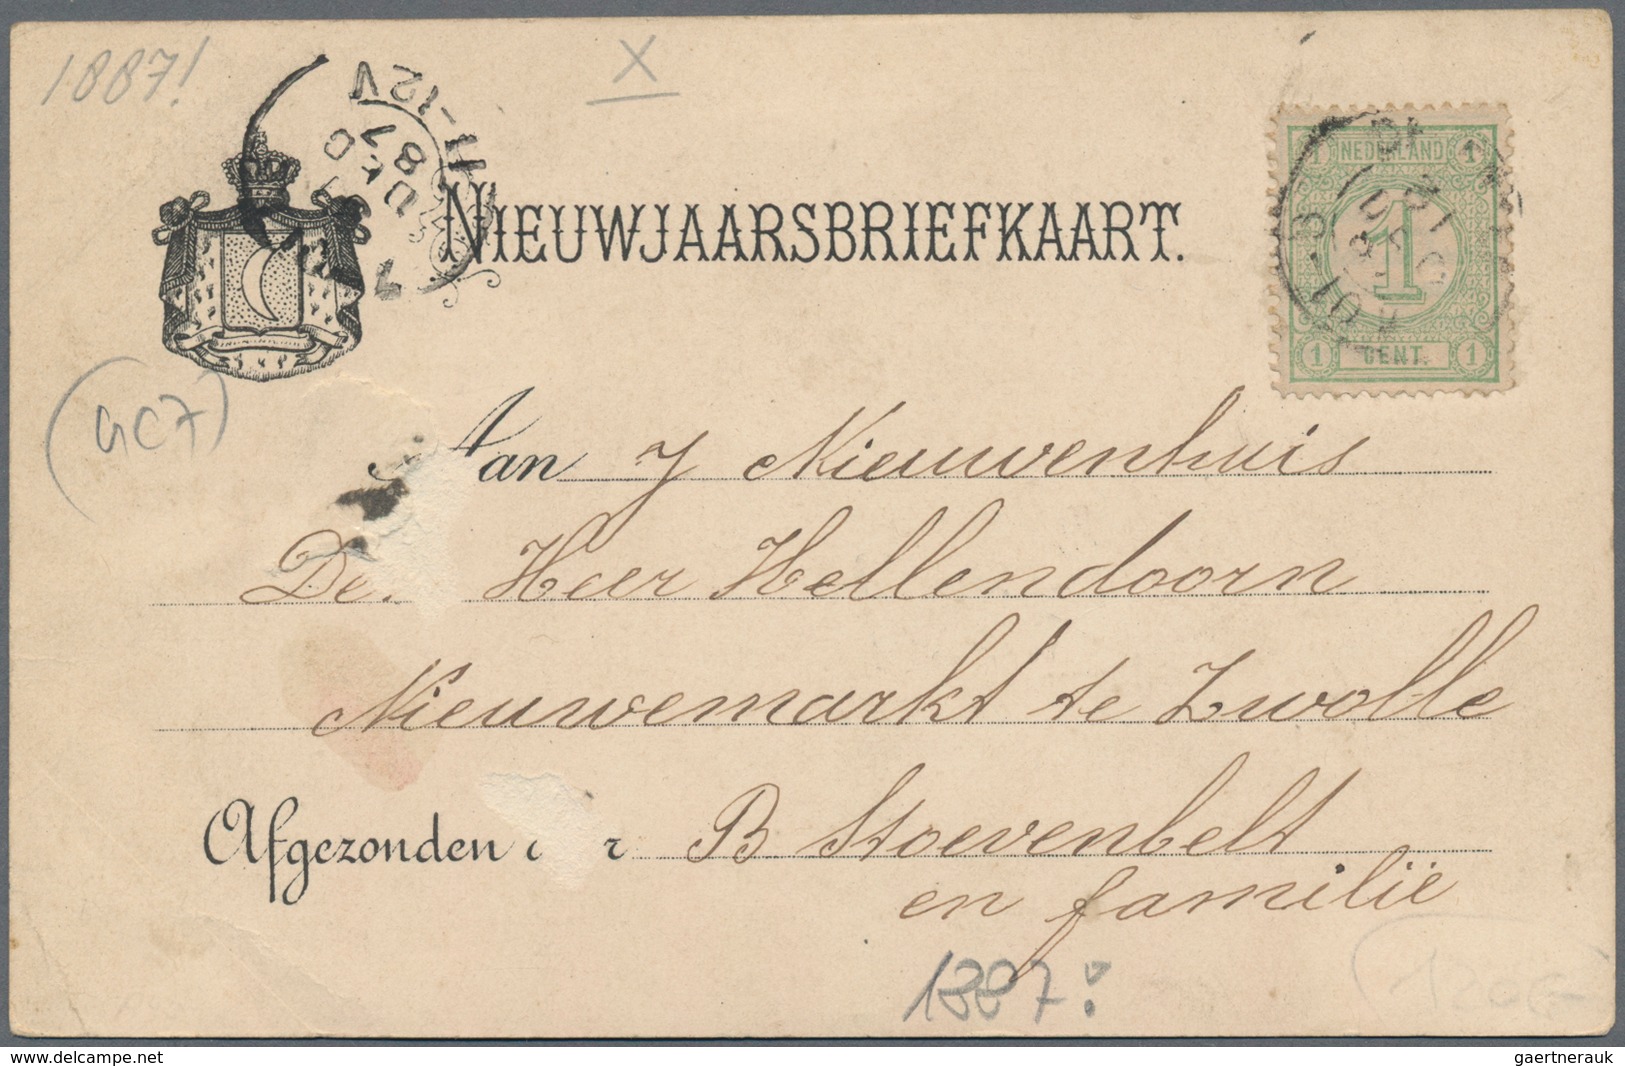 1887!
X
11-12V
DEC
87
NIEUWJAARSBRIEFKAART.
1 NEDERLAND 1
1
1 CENT. 1
(GC7)
Aan J Nieuwenhuis
De Heer Hellendoorn
Nieuwemarkt te Zwolle
Afgezonden r B Stoevenbelt
en familië
1887!
gaertnerauk
www.delcampe.net